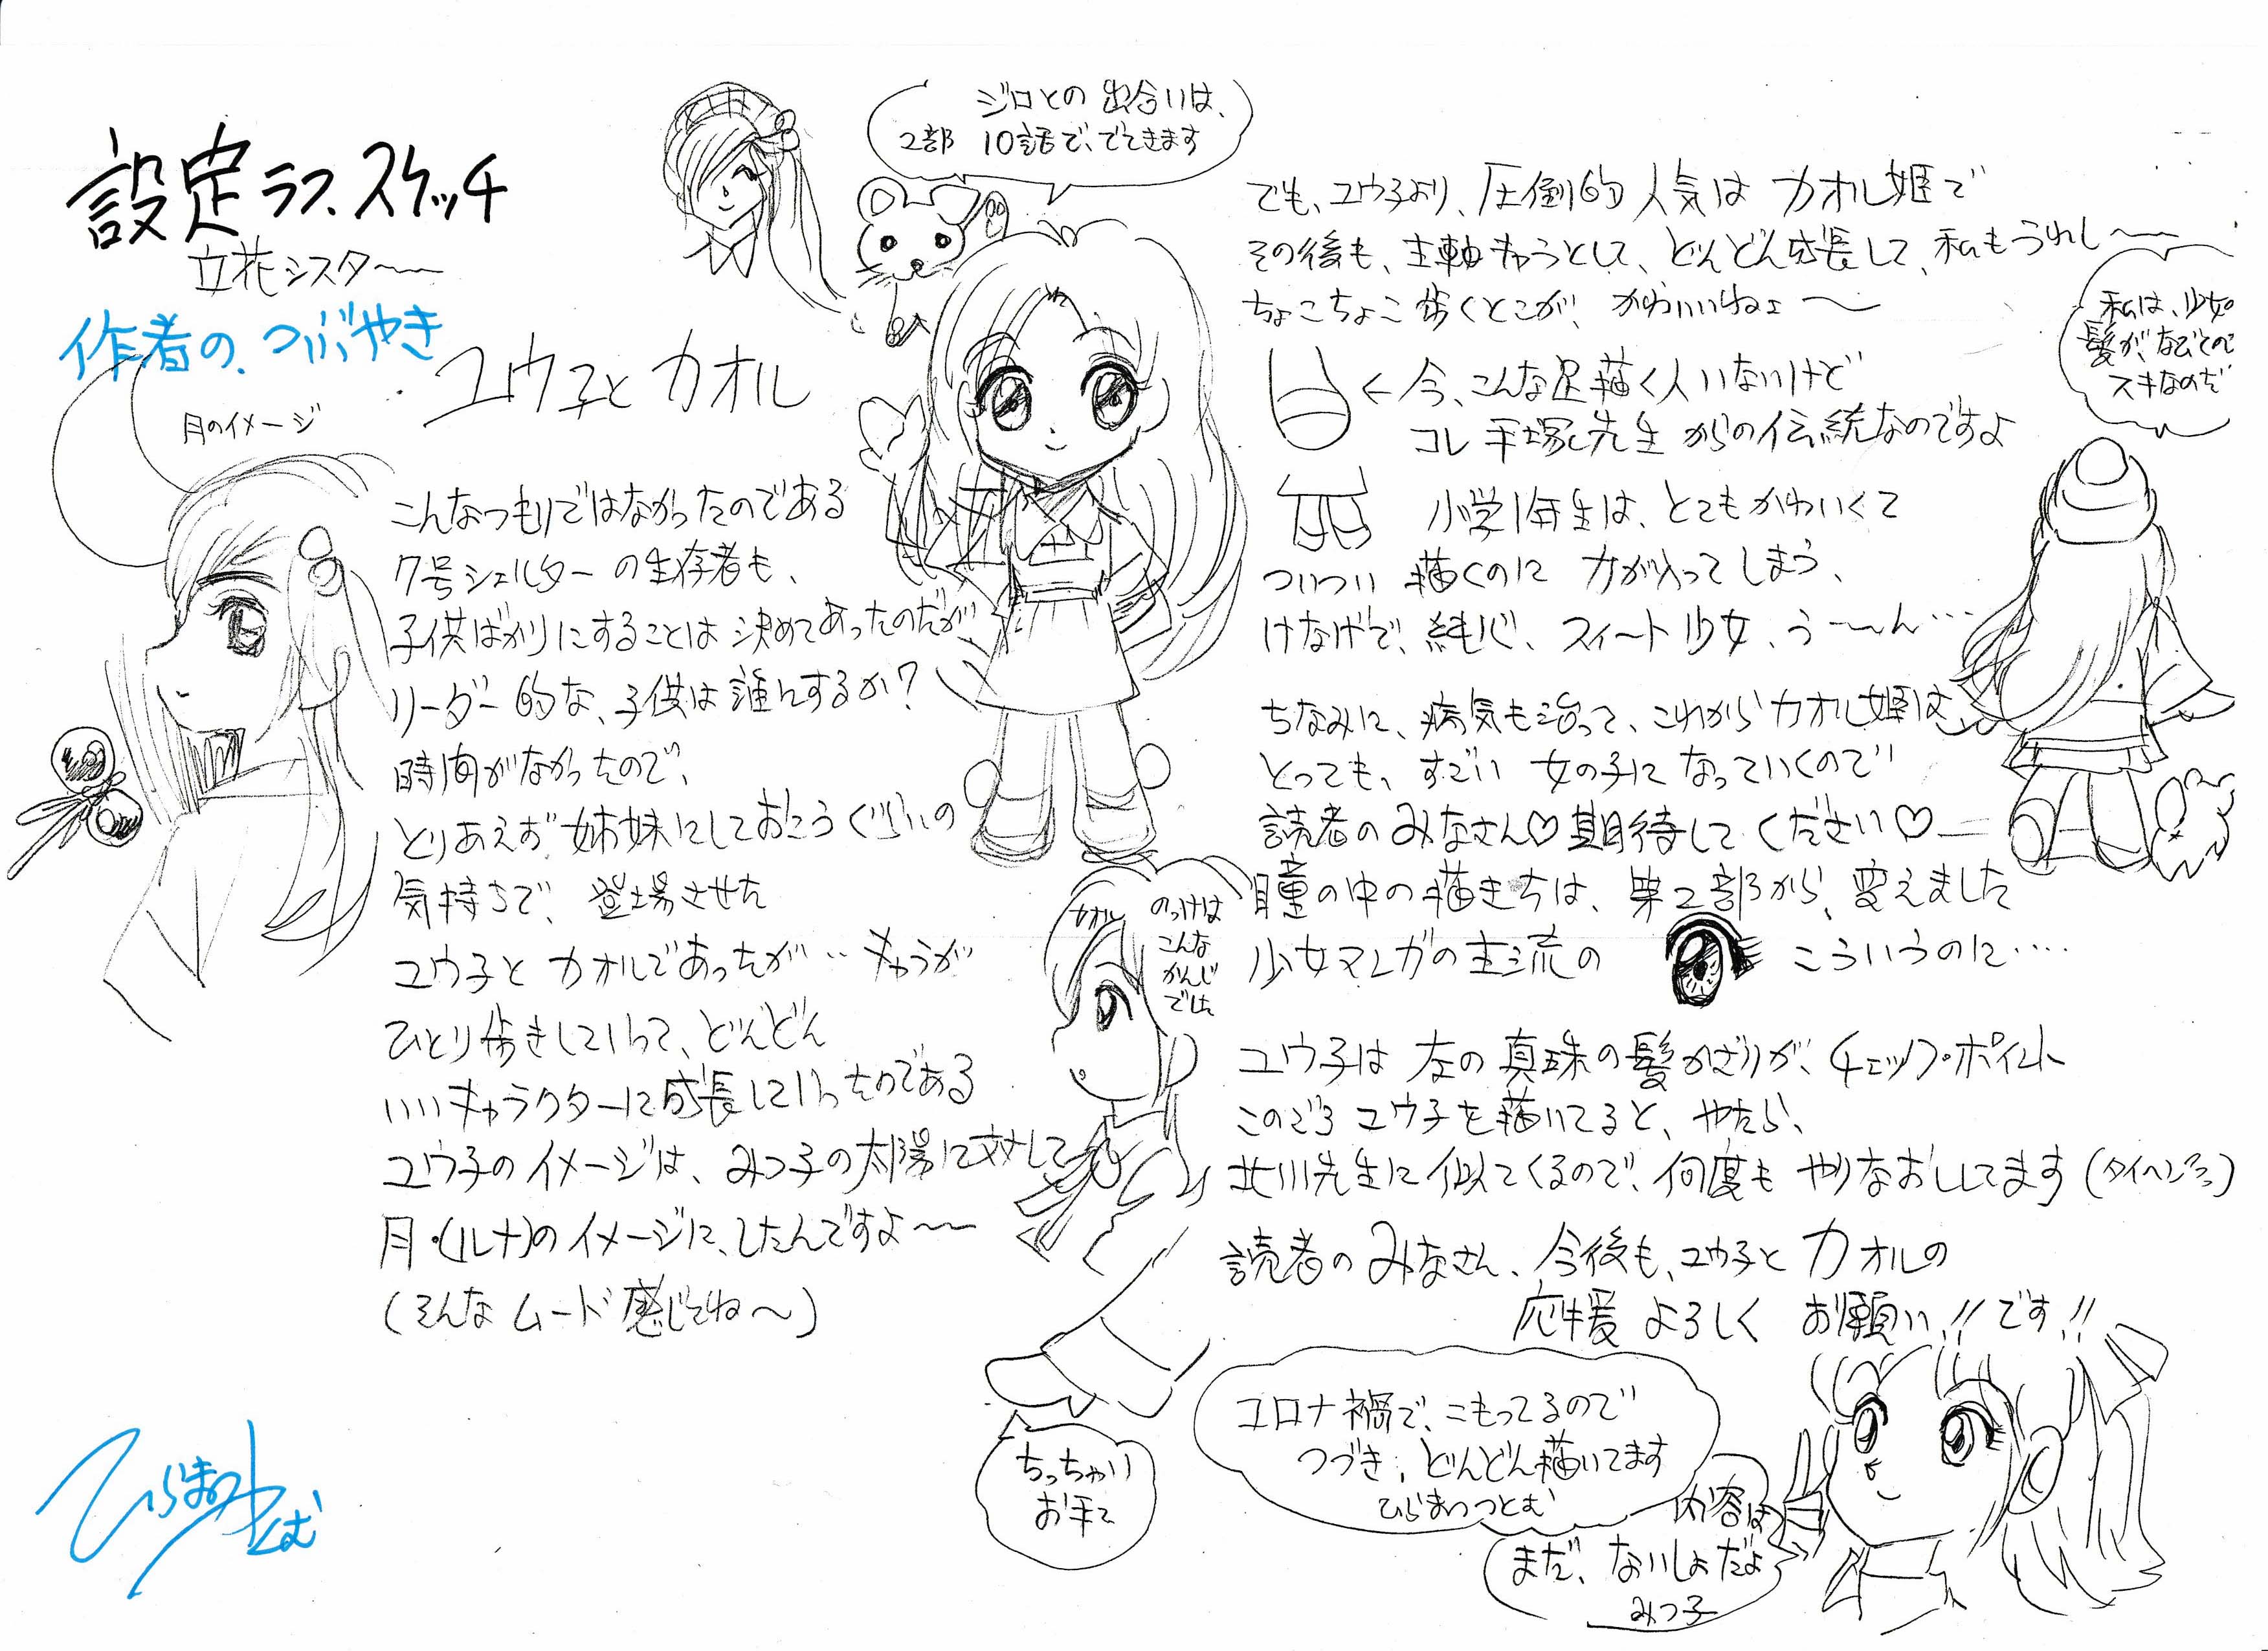 設定ラフ、スケッチ
立花シスター〜
作者の、つぶやき
ユウ子と カオル
月のイメージ
ジロとの 出合いは、
2部 10話で、でてきます
こんなつもりではなかったのである
7号シェルターの生存者も、
子供ばかりにすることは 決めてあったのだが
リーダー的な、子供は誰にするか？
時間がなかったので、
とりあえず 姉妹にしておこうぐらいの
気持ちで、登場させた
ユウ子と カオルであったが…キャラが
ひとり歩きしていって、どんどん
いいキャラクターに成長していったのである
ユウ子のイメージは、みつ子の太陽に対して
月・(ルナ)の イメージに、したんですよ〜
(そんな ムード 感じてね〜)
でも、ユウ子より、圧倒的 人気は カオル姫で
その後も、主軸キャラとして、どんどん成長して、私もうれし〜
ちょこちょこ 歩くとこが、かわいいねェ〜
私は、少女の
髪が、なびくのに
スキなのだ
←今、こんな足描く人いないけど
コレ 手塚先生 からの伝統なのですよ
小学1年生は、とてもかわいくて
ついつい 描くのに 力が入ってしまう、
けなげで、純心、スイート少女、う〜ん…
ちなみに、病気も治って、これからカオル姫は
とっても、すごい 女の子に なっていくので
読者の みなさん♡期待して ください♡
瞳の中の描き方は、第2部から、変えました
少女マンガの主流の こういうのに‥‥
カオル のっけは
こんな
かんじ
でした
ユウ子は 左の 真珠の髪かざりが、チェック・ポイント
このごろ ユウ子を 描いてると、やたら、
北川先生に 似てくるので、何度も やりなおししてます(タイヘンダ)
読者の みなさん、今後も、ユウ子と カオルの
応援 よろしく お願い!!です!!
ちっちゃい
お手て
コロナ禍で、こもってるので
つづき、どんどん描いてます
ひらまつつとむ
内容は
まだ、ないしょだよ
みつ子
ひらまつつとむ